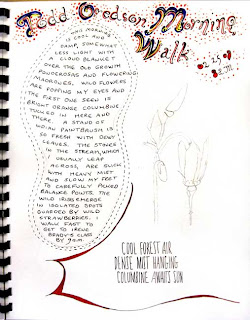 Todd Godson Morning
Walk
6.25.09
8 a.m.
and morning
cool and
damp, somewhat
less light with
a cloud blanket
over the old growth
ponderosas and flowering
magrones. Wild flowers
are popping my eyes and
the first one seen is
bright orange columbine
tucked in here and
there. A stand of
Indian paintbrush is
so fresh with dewy
leaves. The stones
in the stream, which I
usually leap
across, are slick
with heavy mist
and slow my feet
to carefully picked
balance points. The
wild iris emerge
in isolated spots
guarded by wild
strawberries. I
walk fast to
get to Irene
Brady's class
by 9 a.m.
Cool forest air
Dense mist hanging
Columbine awaits sun